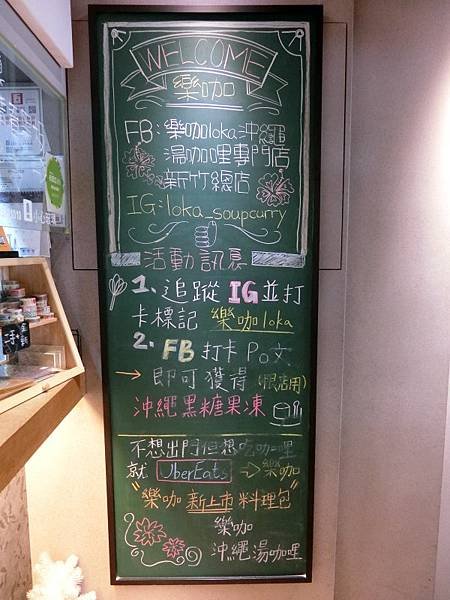 WELCOME
樂咖
FB:樂咖loka沖繩
湯咖哩專門店
新竹總店
IG:loka_soupcurry
活動訊息
1.追蹤IG並打
卡標記 樂咖loka
2.FB打卡Po文
→即可獲得(限店用)
沖繩黑糖果凍
不想出門但想吃咖哩
就 UberEats → 樂咖
"樂咖新上市料理包"
樂咖
沖繩湯咖哩